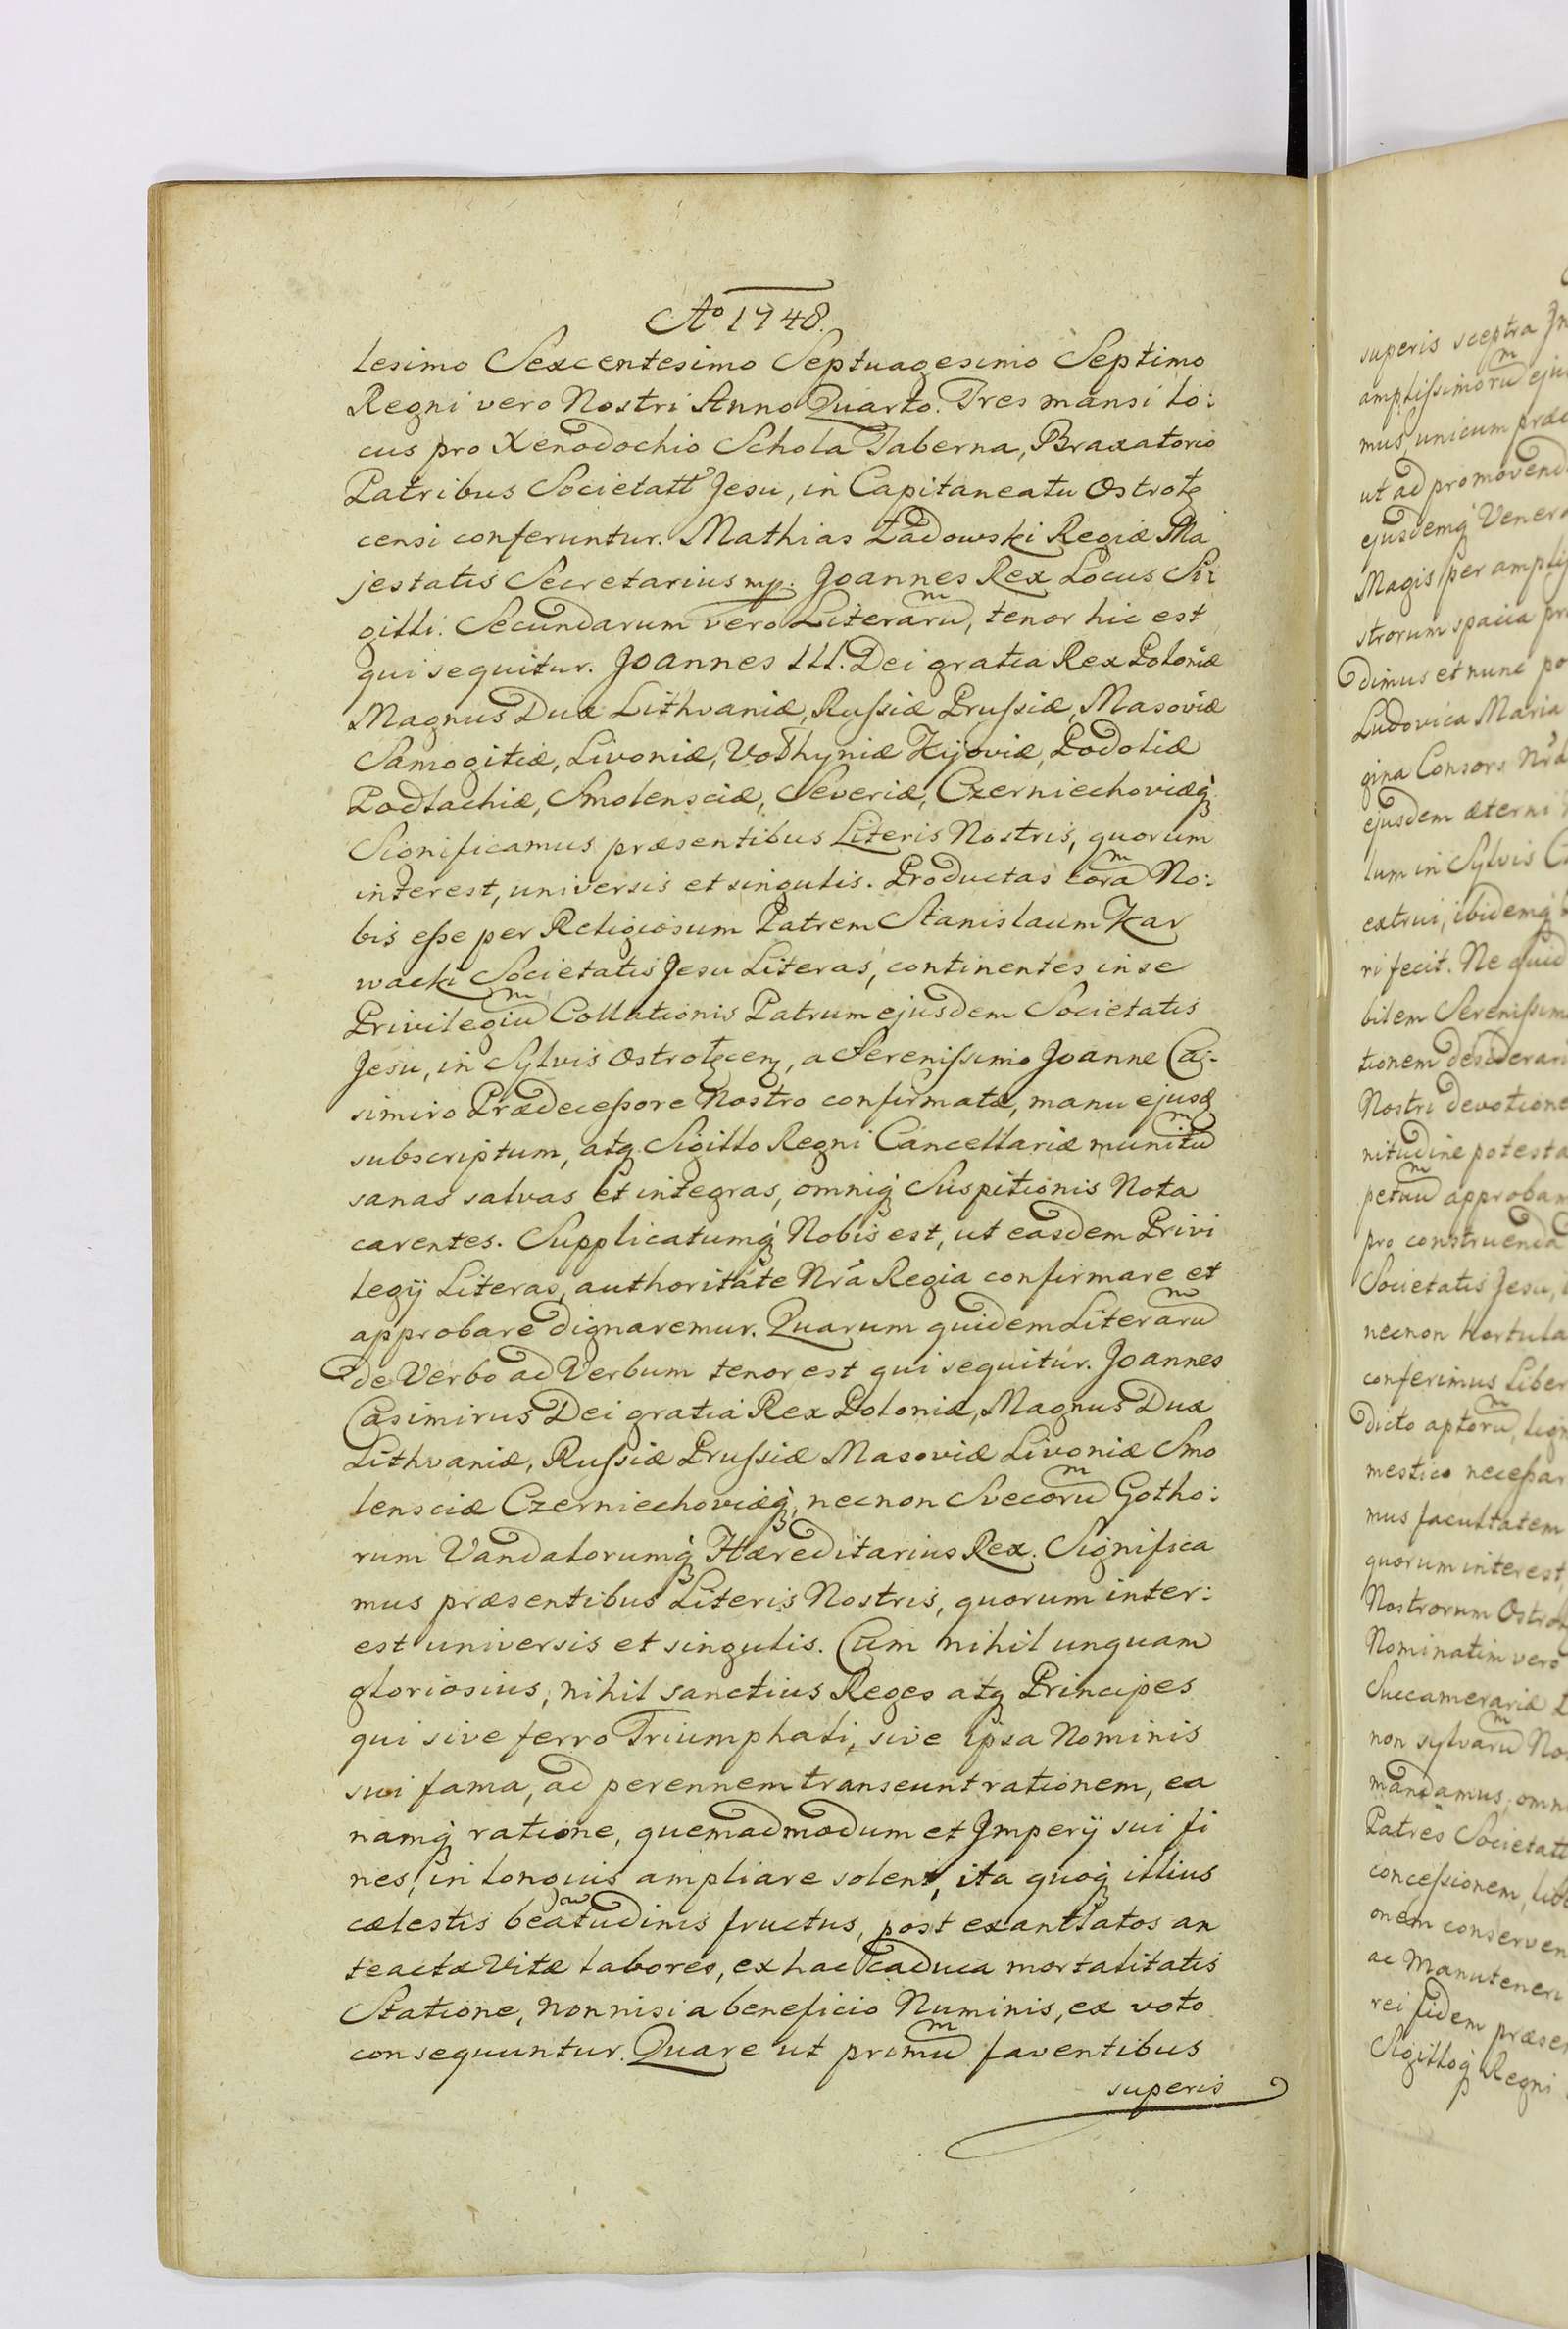 Aº 1748.
lesimo Sexcentesimo Septuagesimo Septimo
Regni vero Nostri Anno Quarto. Tres mansi lo:
cus pro Xenodochio Schola Taberna, Braxatorio
Patribus Societatt Jesu, in Capitaneatu Ostrołę
censi conferuntur. Mathias Ładowski Regiæ Ma
jestatis Secretarius mp. Joannes Rex Locus Si:
gilli. Secundarum vero Literarum, tenor hic est
qui sequitur. Joannes III. Dei gratia Rex Poloniæ
Magnus Dux Lithvaniæ, Rußiæ Prußiæ, Masoviæ
Samogitiæ, Livoniæ, Volhyniæ Kijoviæ, Podoliæ
Podlachiæ, Smolensciæ, Severiæ, Czerniechoviæq;
Significamus præsentibus Literis Nostris, quorum
interest, universis et singulis. Productas coram No:
bis eße per Religiosum Patrem Stanislaum Kar
wacki Societatis Jesu Literas, continentes in se
Privilegium Collationis Patrum ejusdem Societatis
Jesu, in Sylvis Ostrołęcen, a Sereniſsimo Joanne Ca-
simiro Prædeceßore Nostro confirmatæ, manu ejusq
subscriptum, atq Sigillo Regni Cancellariæ munitum
sanas salvas et integras, omniq; Suspitionis Nota
carentes. Supplicatumq; Nobis est, ut easdem Privi
legij Literas, authoritate Nrá Regia confirmare et
approbare dignaremur. Quarum quidem Literarum
de Verbo ad Verbum tenor est qui sequitur. Joannes
Casimirus Dei gratia Rex Poloniæ, Magnus Dux
Lithvaniæ, Rußiæ Prußiæ Masoviæ Livoniæ Smo
lensciæ Czerniechoviæq; necnon Svecorum Gotho:
rum Vandalorumq; Hæreditarius Rex. Significa
mus præsentibus Literis Nostris, quorum inter:
est universis et singulis. Cum nihil unquam
gloriosius, nihil sanctius Reges atq Principes
qui sive ferro Triumphali, sive ipsa Nominis
sui fama, ad perennem transeunt rationem, ea
namq; ratione, quemadmodum et Imperij sui fi
nes, in longuis ampliare solent, ita quoq; illius
cælestis beatudinis fructus, post exantlatos an
teactæ Vitæ labores, ex hac caduca mortalitatis
Statione, non nisi a beneficio Numinis, ex voto
consequuntur. Quare ut primum faventibus
superis
superis sceptra
amplißimorum
mus, unicum
ut ad promovend
ejusdemq Venera
Magis per
strorum spacia
dimus et nunc
Ludovica Maria
gina Consors Nrá
ejusdem æterni
lum in Sylvis
extrui, ibidemq
ri fecit. Ne quid
bilem Sereniſsim
tionem desiderari
Nostri devotione
nitudine potesta
petuum approbam
pro construenda
Societatis Jesu,
necnon hortula
conferimus Liber
dicto aptorum, lign
mestico neceßar
mus facultatem
quorum interest,
Nostrorum Ostroł
Nominatim vero
Succamerariæ
non sylvarum No
mandamus, omn
Patres Societatt
conceßionem,
onem conserven
ac Manuteneri
rei fidem præsen
Sigilloq Regni